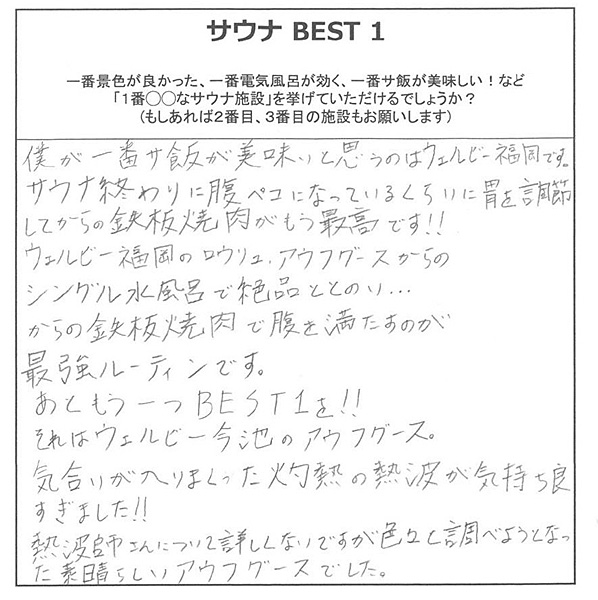 サウナ BEST 1
一番景色が良かった、一番電気風呂が効く、一番サ飯が美味しい！など
「1番◯◯なサウナ施設」を挙げていただけるでしょうか？
(もしあれば2番目、3番目の施設もお願いします)
僕が一番サ飯が美味いと思うのはウェルビー福岡です。
サウナ終わりに腹ペコになっているくらいに胃を調節
してからの鉄板焼肉がもう最高です!!
ウェルビー福岡のロウリュ、アウフグースからの
シングル水風呂で絶品ととのい…
からの鉄板焼肉で腹を満たすのが
最強ルーティンです。
あともう一つBEST1を!!
それはウェルビー今池のアウフグース。
気合いが入りまくった灼熱の熱波が気持ち良
すぎました!!
熱波師さんについて詳しくないですが色々と調べようとなっ
た素晴らしいアウフグースでした。